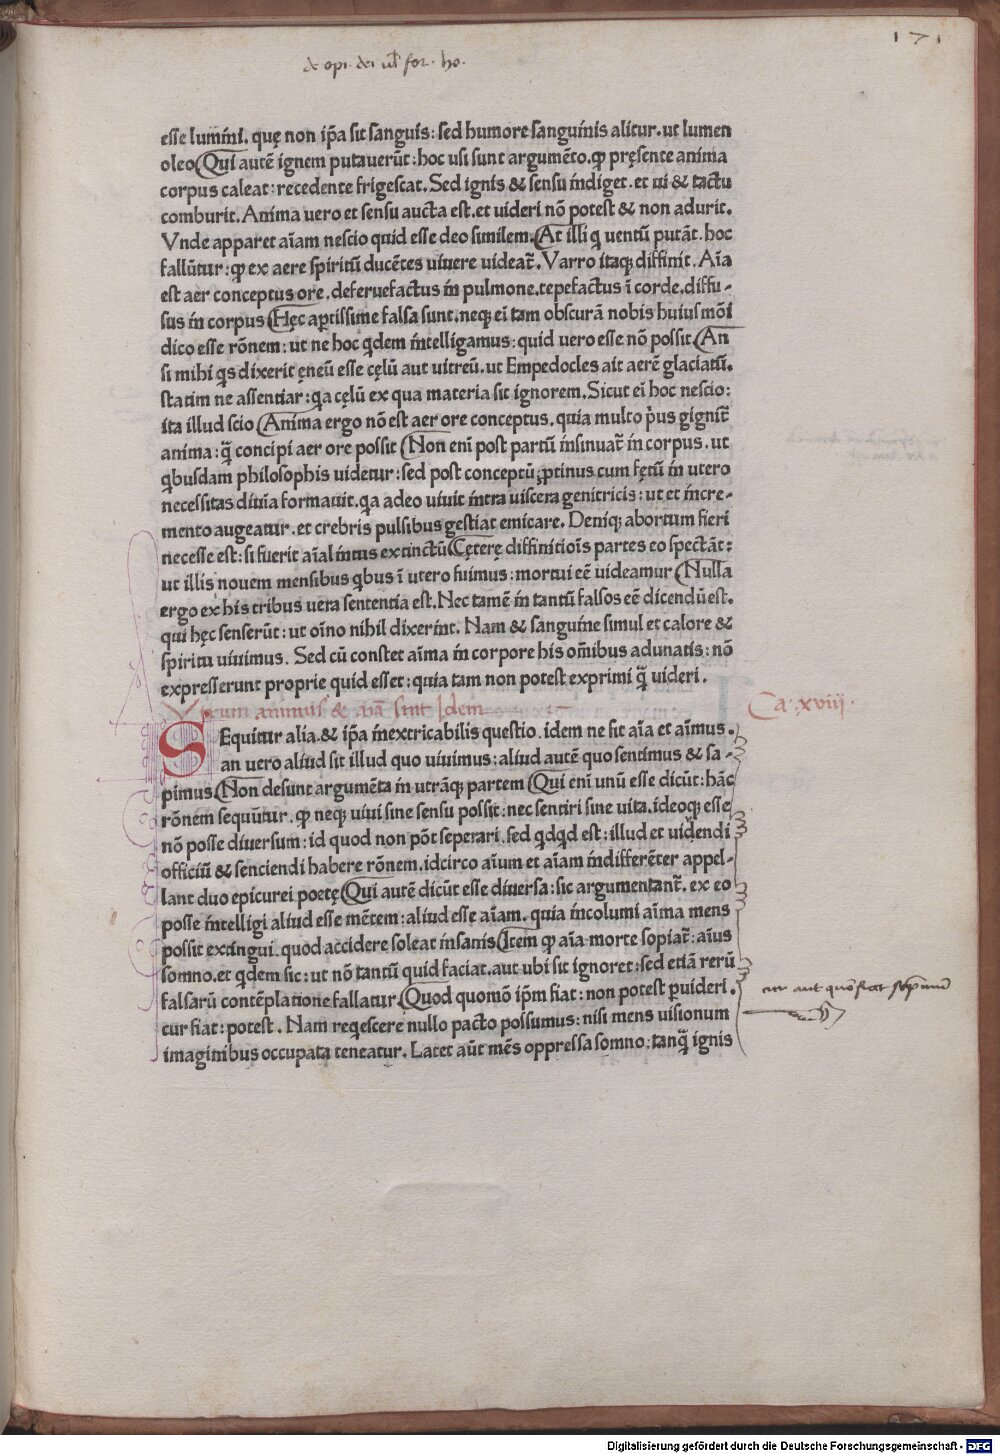 171
de opi. dei ul for. ho.
esse lumini. quę non ip̃a sit sanguis: sed humore sanguinis alitur. ut lumen
oleo Qui autẽ ignem putauerũt: hoc usi sunt argumẽto. ꝙ pręsente anima
corpus caleat: recedente frigescat. Sed ignis & sensu indiget. et ui & tactu
comburit. Anima uero et sensu aucta est. et uideri nõ potest & non adurit.
Vnde apparet aĩam nescio quid esse deo similem. At illi q uentũ putãt. hoc
fallũtur: ꝙ ex aere spiritũ ducẽtes uiuere uideat̃. Varro itaqꝫ diffinit. Aĩa
est aer conceptus ore. deferuefactus in pulmone. tepefactus ĩ corde. diffu-
sus in corpus Hęc aptissime falsa sunt. neqꝫ eĩ tam obscurã nobis huius mõi
dico esse rõnem: ut ne hoc qdem intelligamus: quid uero esse nõ possit. An
si mihi qs dixerit ęneũ esse cęlũ aut uitreũ. ut Empedocles ait aerẽ glaciatũ.
statim ne assentiar: qa cęlũ ex qua materia sit ignorem. Sicut eĩ hoc nescio:
ita illud scio Anima ergo nõ est aer ore conceptus. quia multo p̃us gignit̃
anima: q̃ concipi aer ore possit Non enĩ post partũ insinuat̃ in corpus. ut
qbusdam philosophis uidetur: sed post conceptũ ꝓtinus. cum fętũ in utero
necessitas diuĩa formauit. qa adeo uiuit intra uiscera genitricis: ut et incre-
mento augeatur. et crebris pulsibus gestiat emicare. Deniqꝫ abortum fieri
necesse est: si fuerit aĩal intus extinctũ Cęterę diffinitiois partes eo spectãt:
ut illis nouem mensibus qbus ĩ utero fuimus: mortui eẽ uideamur Nulla
ergo ex his tribus uera sententia est. Nec tamẽ in tantũ falsos eẽ dicendũ est.
qui hęc senserũt: ut oĩno nihil dixerint. Nam & sanguine simul et calore &
spiritu uiuimus. Sed cũ constet aĩma in corpore his om̃ibus adunatis: nõ
expresserunt proprie quid esset: quia tam non potest exprimi q̃ uideri.
Vtrum animus & aĩa sint Idem
Ca. xviij.
SEquitur alia. & ip̃a inextricabilis questio. idem ne sit aĩa et aĩmus.
an uero aliud sit illud quo uiuimus: aliud autẽ quo sentimus & sa-
pimus Non desunt argumẽta in utrãqꝫ partem Qui enĩ unũ esse dicũt: hãc
rõnem sequũtur. ꝙ neqꝫ uiui sine sensu possit: nec sentiri sine uita. ideoqꝫ esse
nõ posse diuersum: id quod non põt seperari. sed qdqd est: illud et uidendi
officiũ & senciendi habere rõnem. idcirco aĩum et aĩam indifferẽter appel-
lant duo epicurei poetę Qui autẽ dicũt esse diuersa: sic argumentant̃. ex eo
posse intelligi aliud esse mẽtem: aliud esse aĩam. quia incolumi aĩma mens
possit extingui. quod accidere soleat insanis Item ꝙ aĩa morte sopiat̃: aĩus
somno. et qdem sic: ut nõ tantũ quid faciat. aut ubi sit ignoret: sed etiã rerũ
falsarũ contẽplatione fallatur. Quod quomõ ip̃m fiat: non potest puideri.
cur aut quõ fiat
cur fiat: potest. Nam reqescere nullo pacto possumus: nisi mens uisionum
imaginibus occupata teneatur. Latet aũt mẽs oppressa somno: tanq̃ ignis
Digitalisierung gefördert durch die Deutsche Forschungsgemeinschaft - DFG